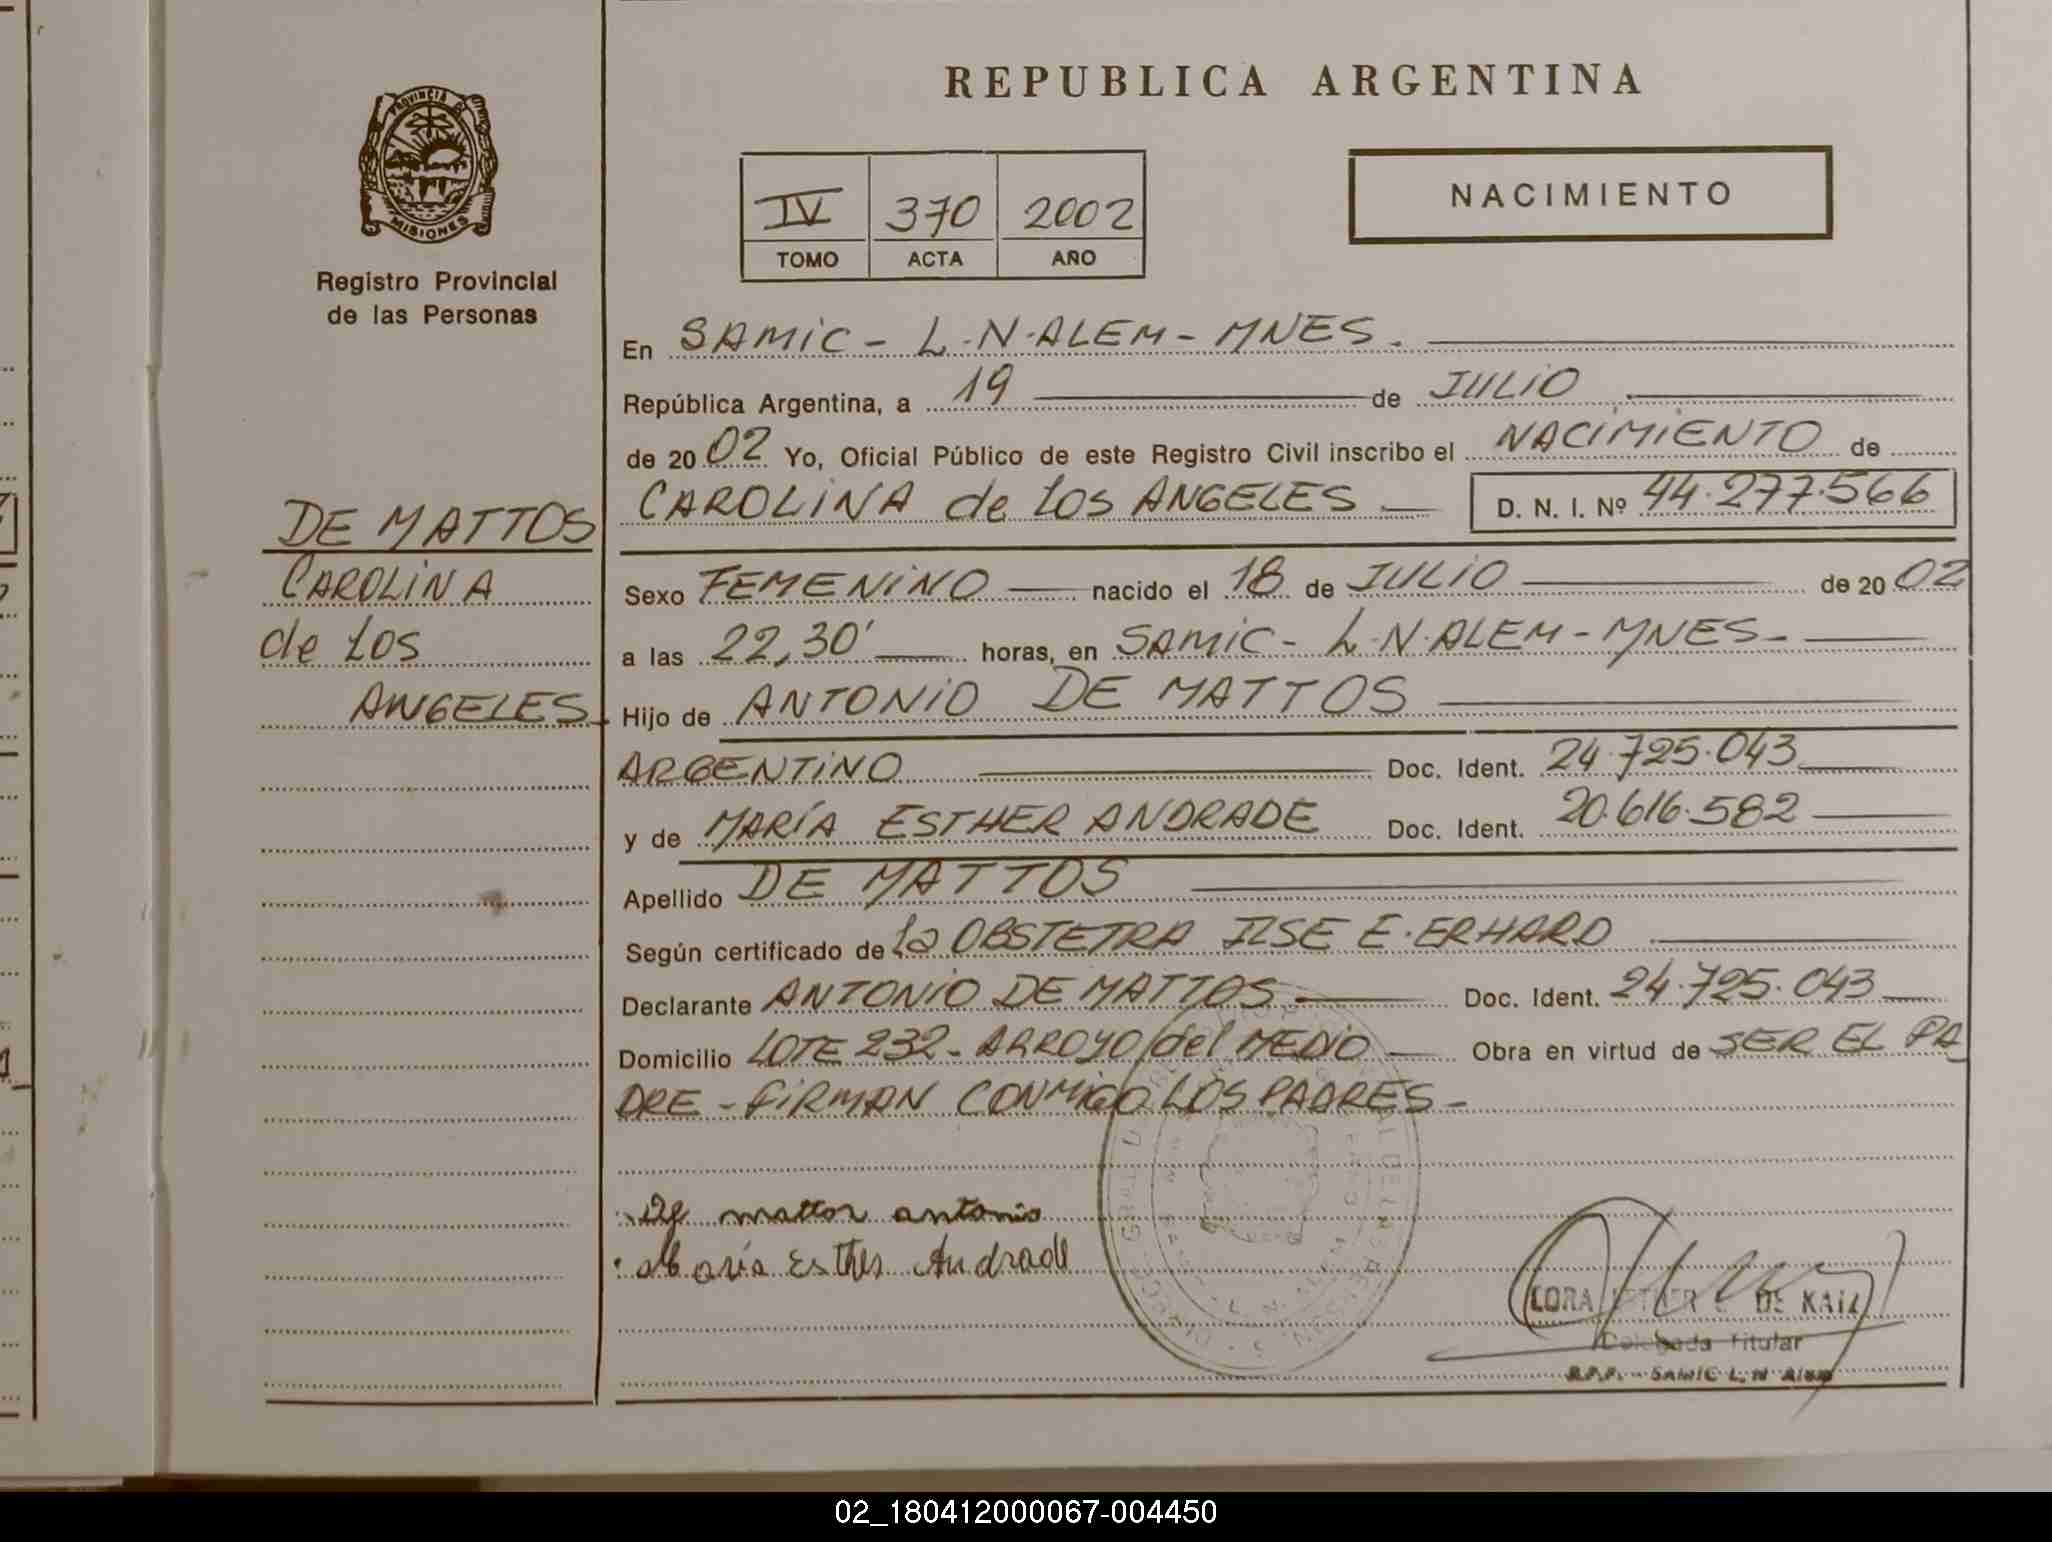 REPUBLICA ARGENTINA
PROVINCIA DE
MISIONES
Registro Provincial
de las Personas
IV 370 2002
TOMO ACTA AÑO
NACIMIENTO
En SAMIC - L.N.ALEM - MNES.
República Argentina, a 19 de JULIO
de 2002 Yo, Oficial Público de este Registro Civil inscribo el NACIMIENTO de
CAROLINA de LOS ANGELES D. N. I. Nº 44.277.566
DE MATTOS
CAROLINA
de LOS
ANGELES
Sexo FEMENINO nacido el 18 de JULIO de 2002
a las 22,30' horas, en SAMIC - L.N.ALEM - MNES -
Hijo de ANTONIO DE MATTOS
ARGENTINO Doc. Ident. 24.725.043
y de MARÍA ESTHER ANDRADE Doc. Ident. 20.616.582
Apellido DE MATTOS
Según certificado de la OBSTETRA ILSE E. ERHARD
Declarante ANTONIO DE MATTOS Doc. Ident. 24.725.043
Domicilio LOTE 232 - ARROYO del MEDIO Obra en virtud de SER EL PA
DRE - FIRMAN CONMIGO LOS PADRES -
De mattos antonio
Maria Esther Andrade
DE KAIZ
Delegada Titular
R.P.P. - SAMIC L. N Alem
02_180412000067-004450